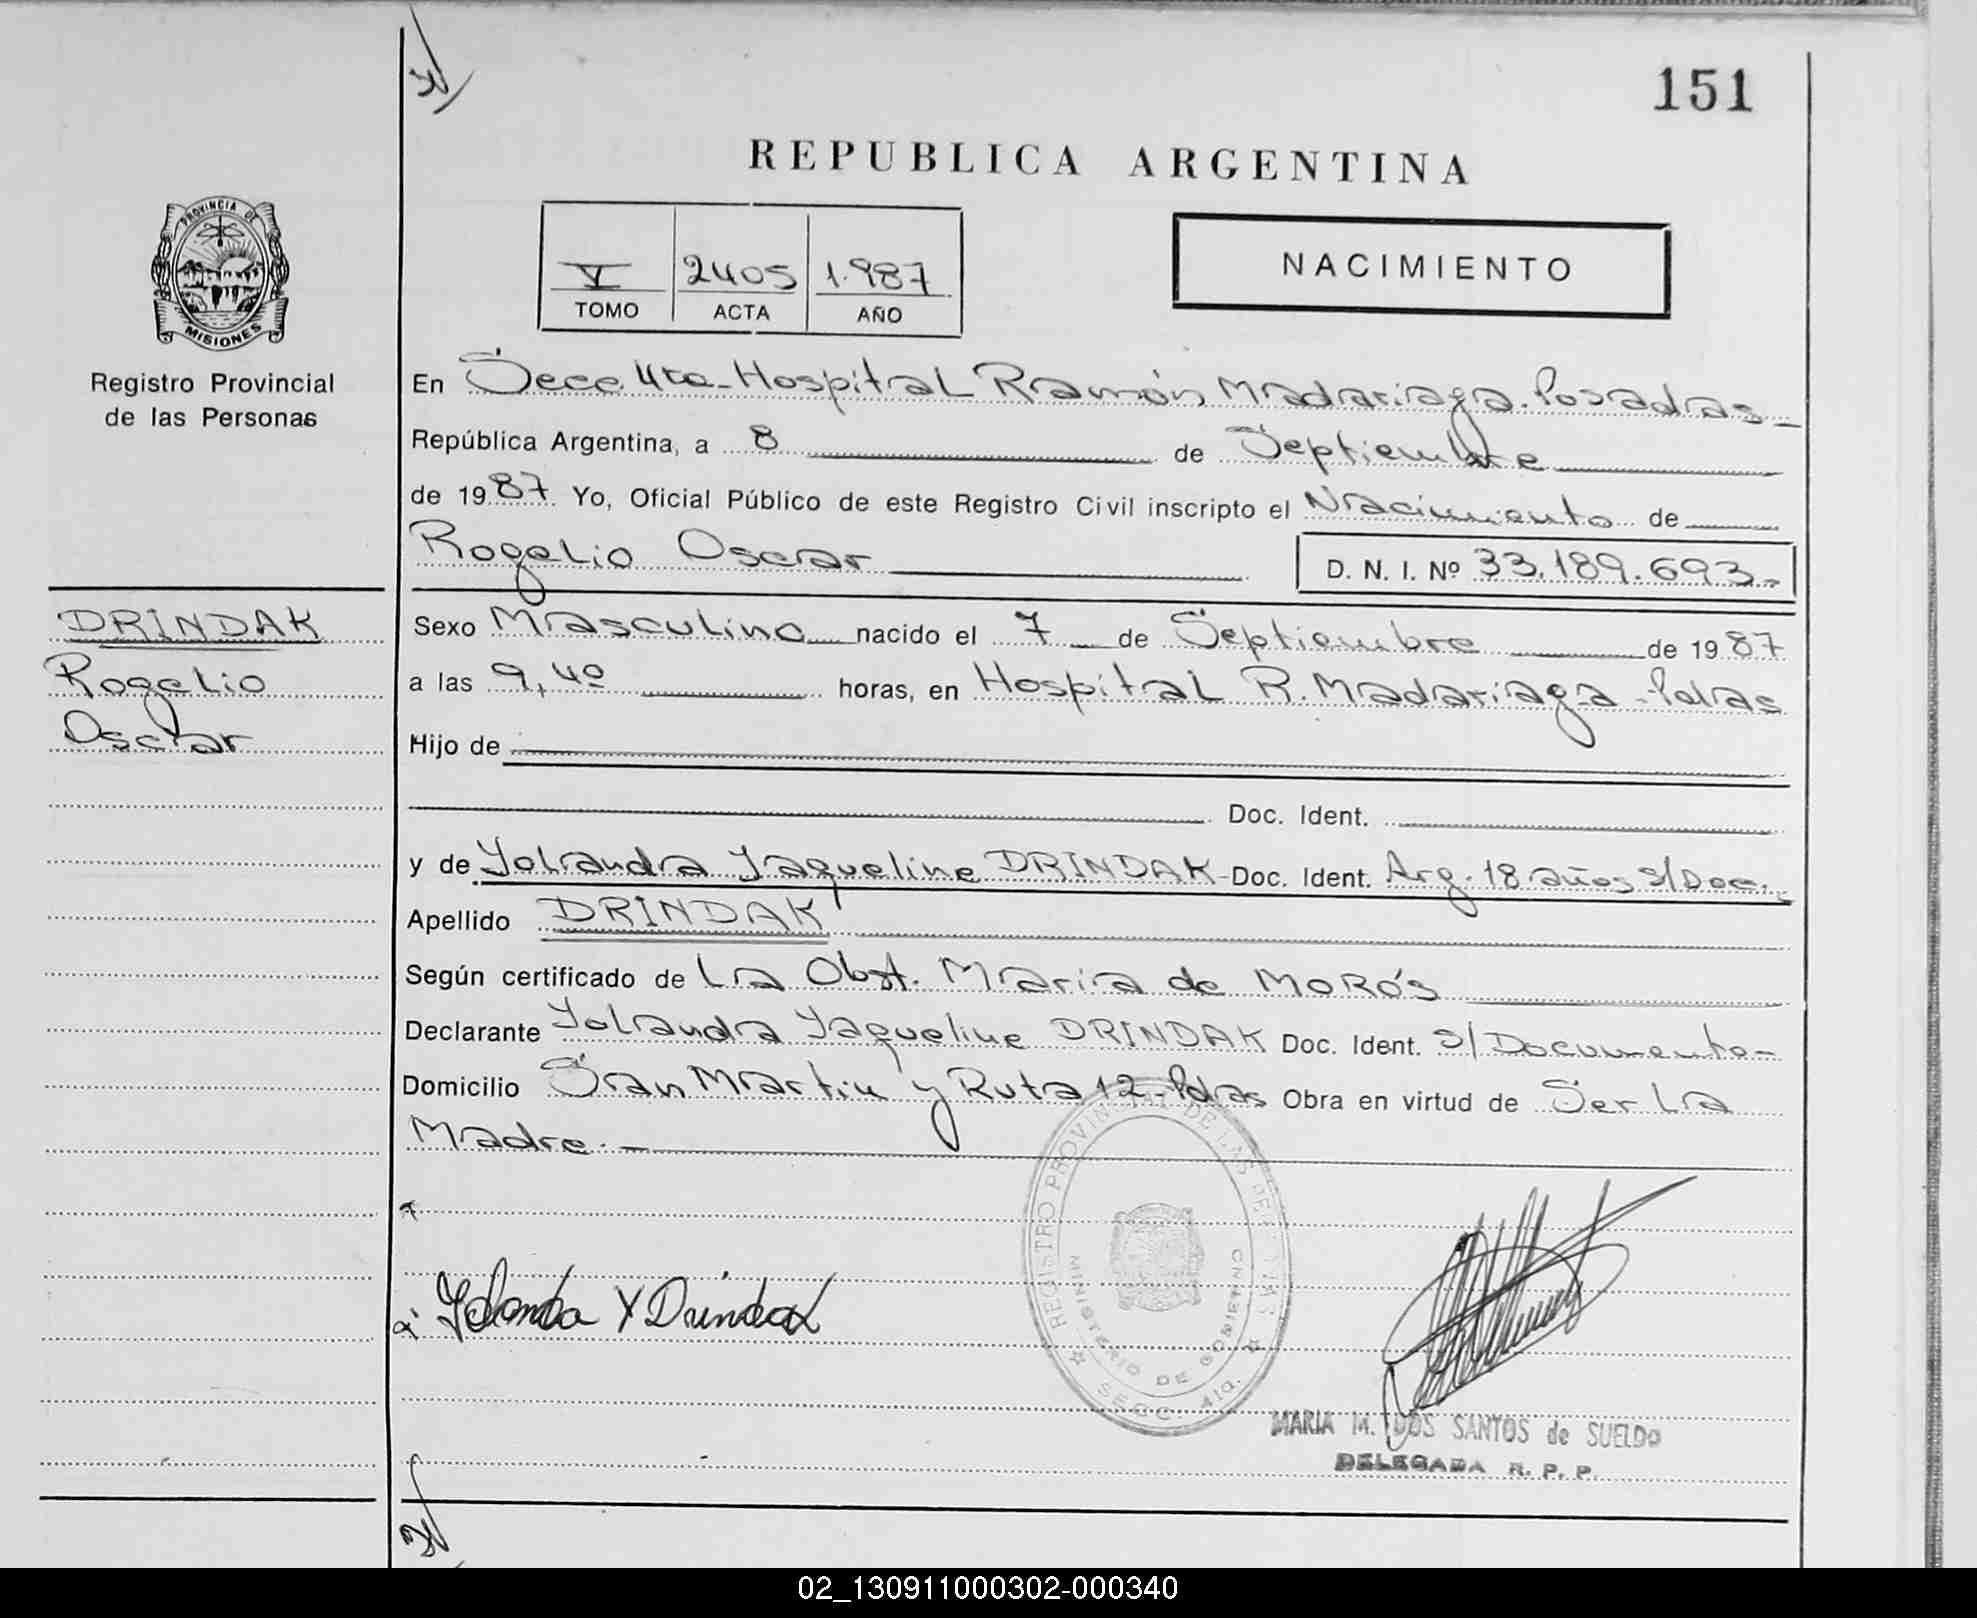 151
REPUBLICA ARGENTINA
PROVINCIA DE
MISIONES
Registro Provincial
de las Personas
V 2405 1.987
TOMO ACTA AÑO
NACIMIENTO
En Secc. 4ta- Hospital Ramón Madariaga. Posadas_
República Argentina, a 8 de Septiembre
de 1987 Yo, Oficial Público de este Registro Civil inscripto el Nacimiento de
Rogelio Oscar D. N. I. Nº 33.189.693.-
DRINDAK
Rogelio
Oscar
Sexo Masculino nacido el 7 de Septiembre de 1987
a las 9,40 horas, en Hospital R. Madariaga - Pdas
Hijo de
Doc. Ident.
y de Yolanda Yaqueline DRINDAK - Doc. Ident. Arg. 18 años s/Doc.-
Apellido DRINDAK
Según certificado de La Obst. Maria de MORÓS
Declarante Yolanda Yaqueline DRINDAK Doc. Ident. s/Documento-
Domicilio San Martin y Ruta 12 - Pdas Obra en virtud de Ser La
Madre. -
Yolanda Y Drindak
REGISTRO PROVINCIAL DE LAS PERSONAS
MINISTERIO DE GOBIERNO
SECC. 4ta.
MARIA M. DOS SANTOS de SUELDO
DELEGADA R. P. P.
02_130911000302-000340